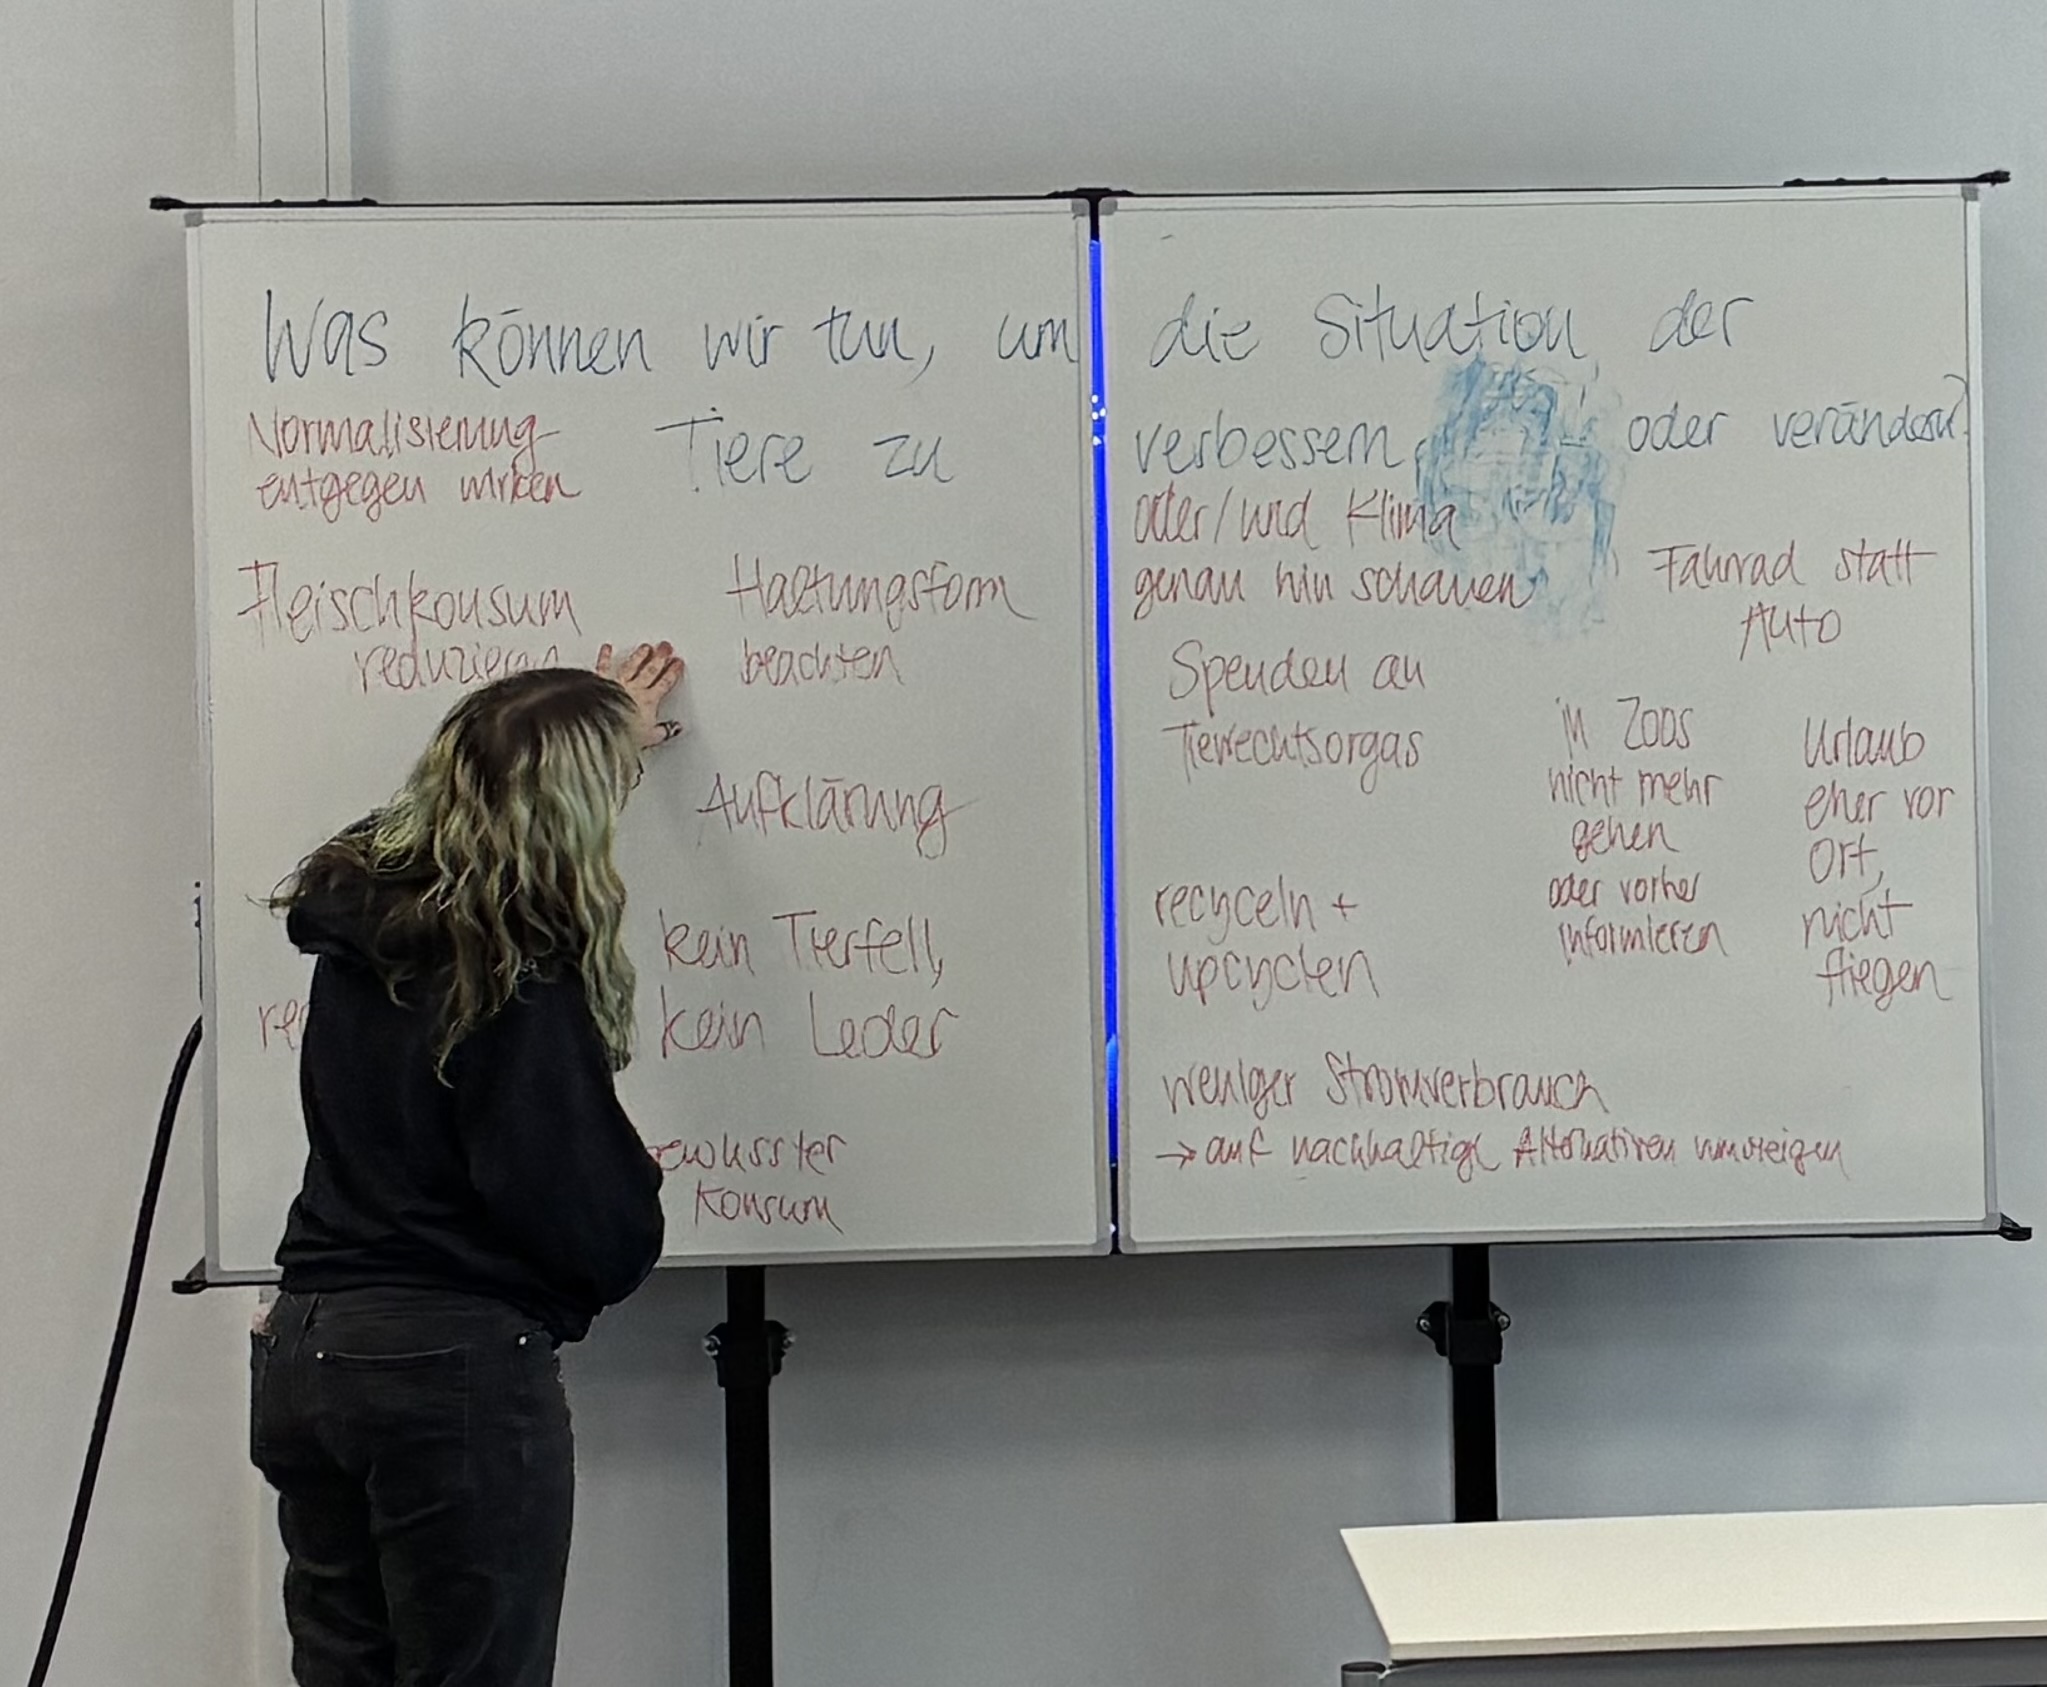 Was können wir tun, um die Situation der
Tiere zu verbessern oder verändern?
Normalisierung
entgegen wirken
Fleischkonsum
reduzieren
Haltungsform
beachten
Aufklärung
kein Tierfell,
kein Leder
bewusster
Konsum
oder/und Klima
genau hin schauen
Fahrrad statt
Auto
Spenden an
Tierrechtsorgas
in Zoos
nicht mehr
gehen
oder vorher
informieren
Urlaub
eher vor
Ort,
nicht
fliegen
recyceln +
upcyclen
weniger Stromverbrauch
→ auf nachhaltige Alternativen umsteigen